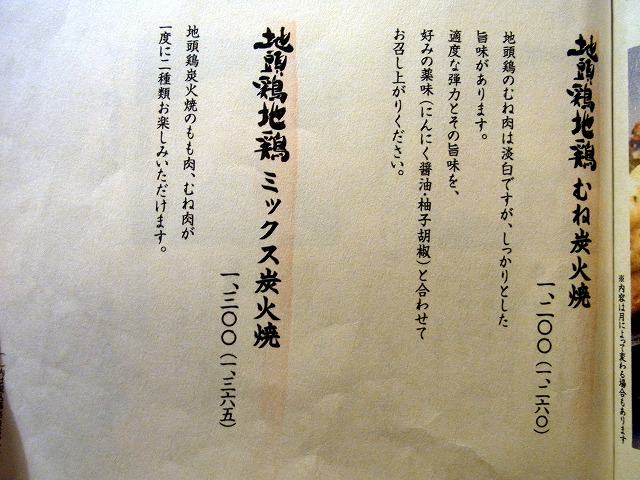 ※内容は月によって変わる場合もあります
地頭鶏地鶏 むね炭火焼
一、二〇〇(一、二六〇)
地頭鶏のむね肉は淡白ですが、しっかりとした
旨味があります。
適度な弾力とその旨味を、
好みの薬味(にんにく醤油・柚子胡椒)と合わせて
お召し上がりください。
地頭鶏地鶏 ミックス炭火焼
一、三〇〇(一、三六五)
地頭鶏炭火焼のもも肉、むね肉が
一度に二種類お楽しみいただけます。